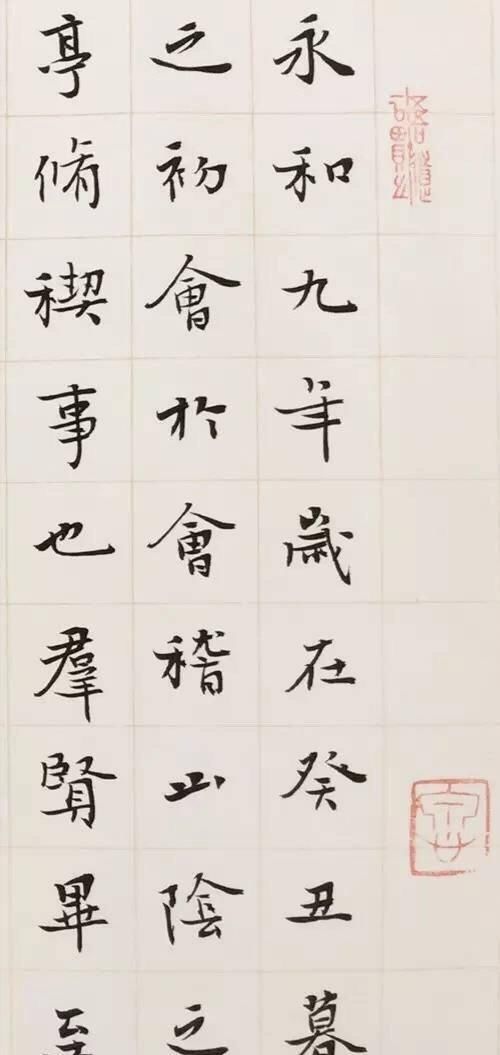 永和九年歲在癸丑暮
之初會於會稽山陰之
亭脩稧事也羣賢畢至